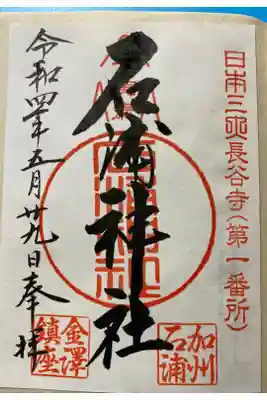 日本三長谷寺(第一番所)
加州
石浦
石浦神社
令和四年五月廿九日奉拝
金澤
鎮座